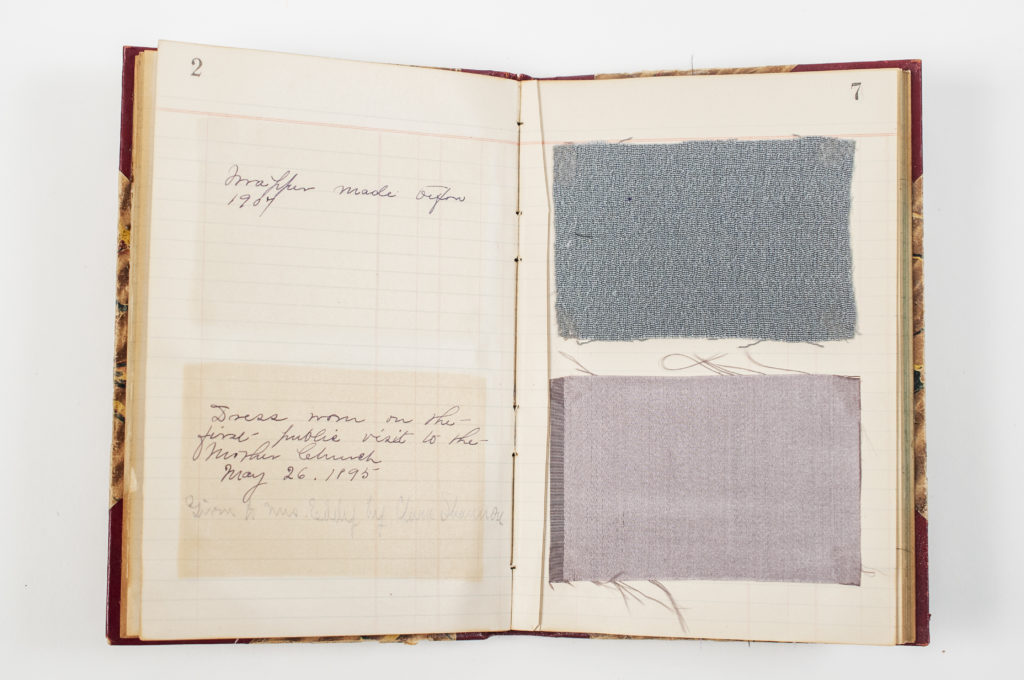 2
Wrapper made
1907
Dress worn on the
first public visit to the
Mother Church
May 26. 1895
Given to Mrs Eddy by Clara Shannon
7